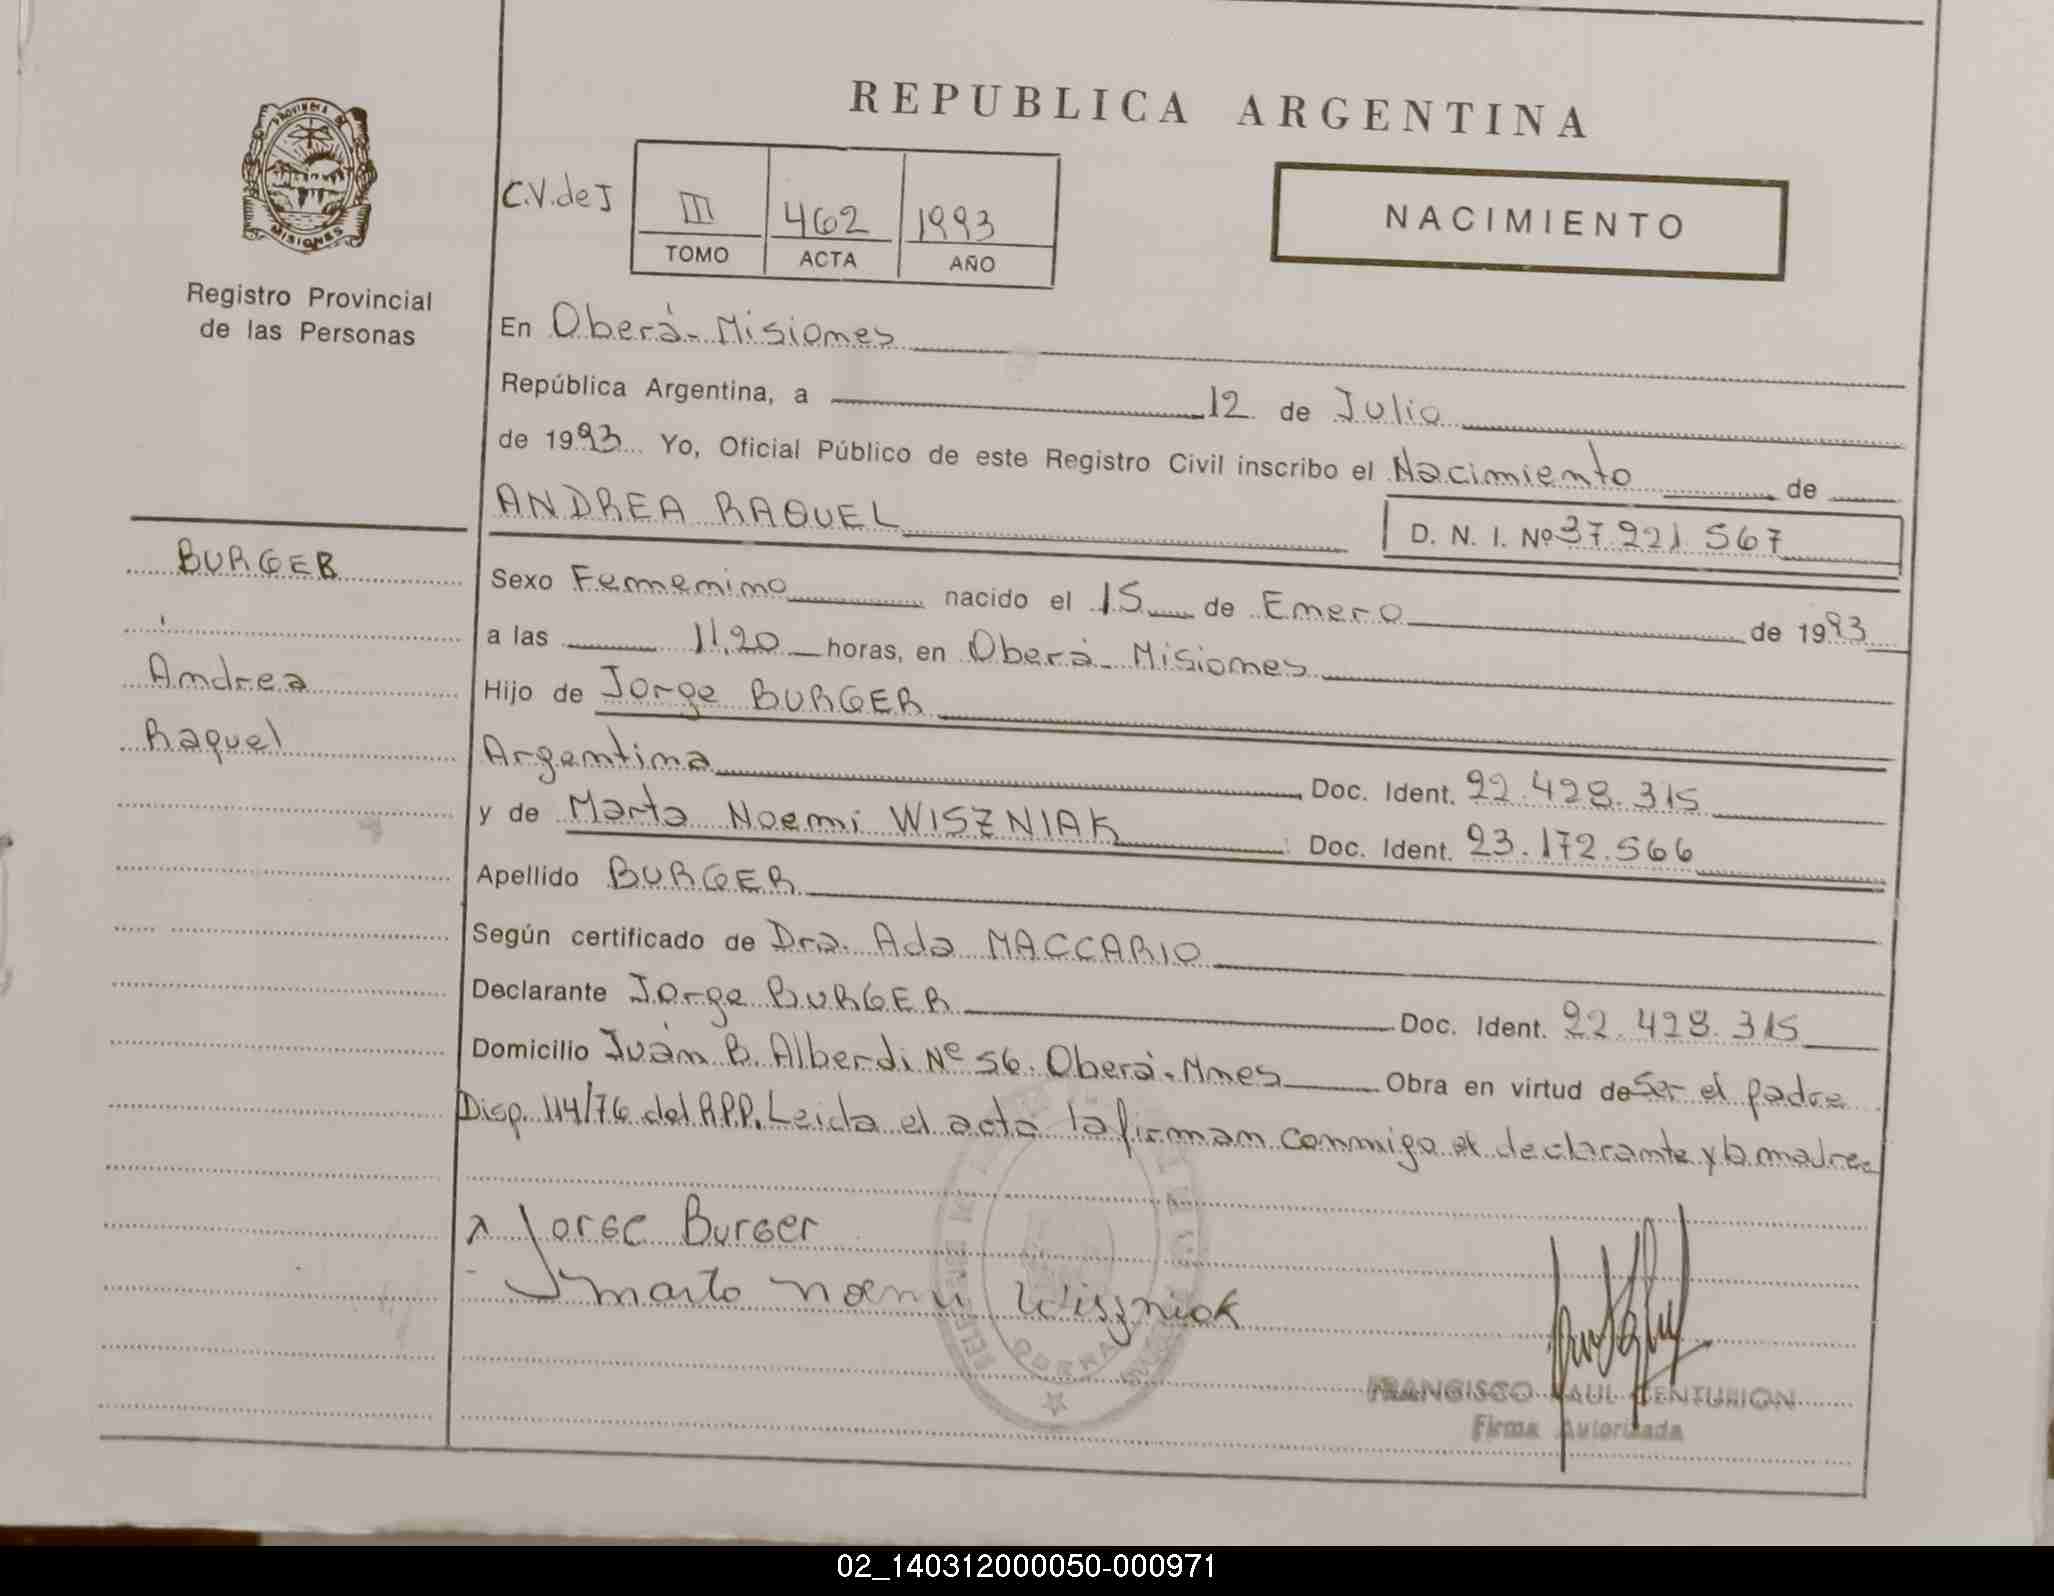 REPUBLICA ARGENTINA
PROVINCIA DE
MISIONES
Registro Provincial
de las Personas
C.V.deJ
III 462 1993
TOMO ACTA AÑO
NACIMIENTO
En Oberá-Misiones
República Argentina, a 12 de Julio
de 1993 Yo, Oficial Público de este Registro Civil inscribo el Nacimiento de
ANDREA RAQUEL D. N. I. Nº 37.221.567
BURGER
Andrea
Raquel
Sexo Femenino nacido el 15 de Enero de 1993
a las 11,20 horas, en Oberá-Misiones
Hijo de Jorge BURGER
Argentina Doc. Ident. 22.428.315
y de Marta Noemi WISZNIAK Doc. Ident. 23.172.566
Apellido BURGER
Según certificado de Dra. Ada MACCARIO
Declarante Jorge BURGER Doc. Ident. 22.428.315
Domicilio Juan B. Alberdi Nº 56. Oberá-Mnes Obra en virtud de Ser el padre
Disp. 114/76 del RPP. Leida el acta la firman conmigo el declarante y la madre
Jorge Burger
Marta Noemi Wiszniak
OBERA
FRANCISCO RAUL CENTURION
Firma Autorizada
02_140312000050-000971